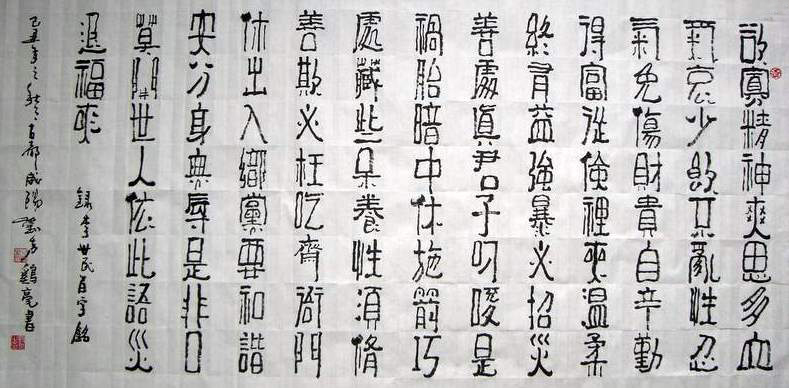 欲寡精神爽思多血
氣衰少飲不亂性忍
氣免傷財貴自辛勤
得富從儉裡來溫柔
終有益強暴必招災
善處真君子刁唆是
禍胎暗中休施箭巧
處藏些呆養性須修
善欺心枉吃齋衙門
休出入鄉黨要和諧
安分身無辱是非口
莫開世人依此語災
退福來
錄李世民百字銘
己丑年之秋古都咸陽鷄毫書